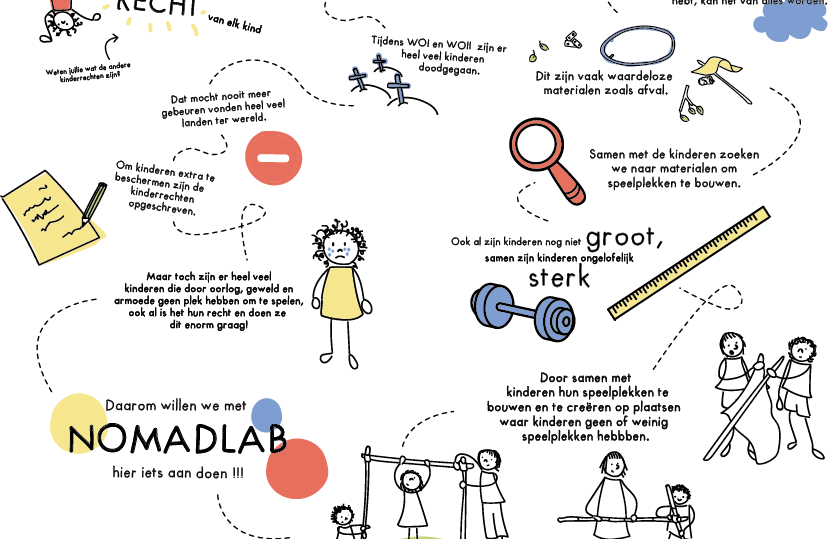 RECHT
van elk kind
Weten jullie wat de andere
kinderrechten zijn?
Tijdens WOI en WOII zijn er
heel veel kinderen
doodgegaan.
Dat mocht nooit meer
gebeuren vonden heel veel
landen ter wereld.
Om kinderen extra te
beschermen zijn de
kinderrechten
opgeschreven.
Maar toch zijn er heel veel
kinderen die door oorlog, geweld en
armoede geen plek hebben om te spelen,
ook al is het hun recht en doen ze
dit enorm graag!
Daarom willen we met
NOMADLAB
hier iets aan doen !!!
hebt, kan het van alles worden.
Dit zijn vaak waardeloze
materialen zoals afval.
Samen met de kinderen zoeken
we naar materialen om
speelplekken te bouwen.
Ook al zijn kinderen nog niet groot,
samen zijn kinderen ongelofelijk
sterk
Door samen met
kinderen hun speelplekken te
bouwen en te creëren op plaatsen
waar kinderen geen of weinig
speelplekken hebbben.